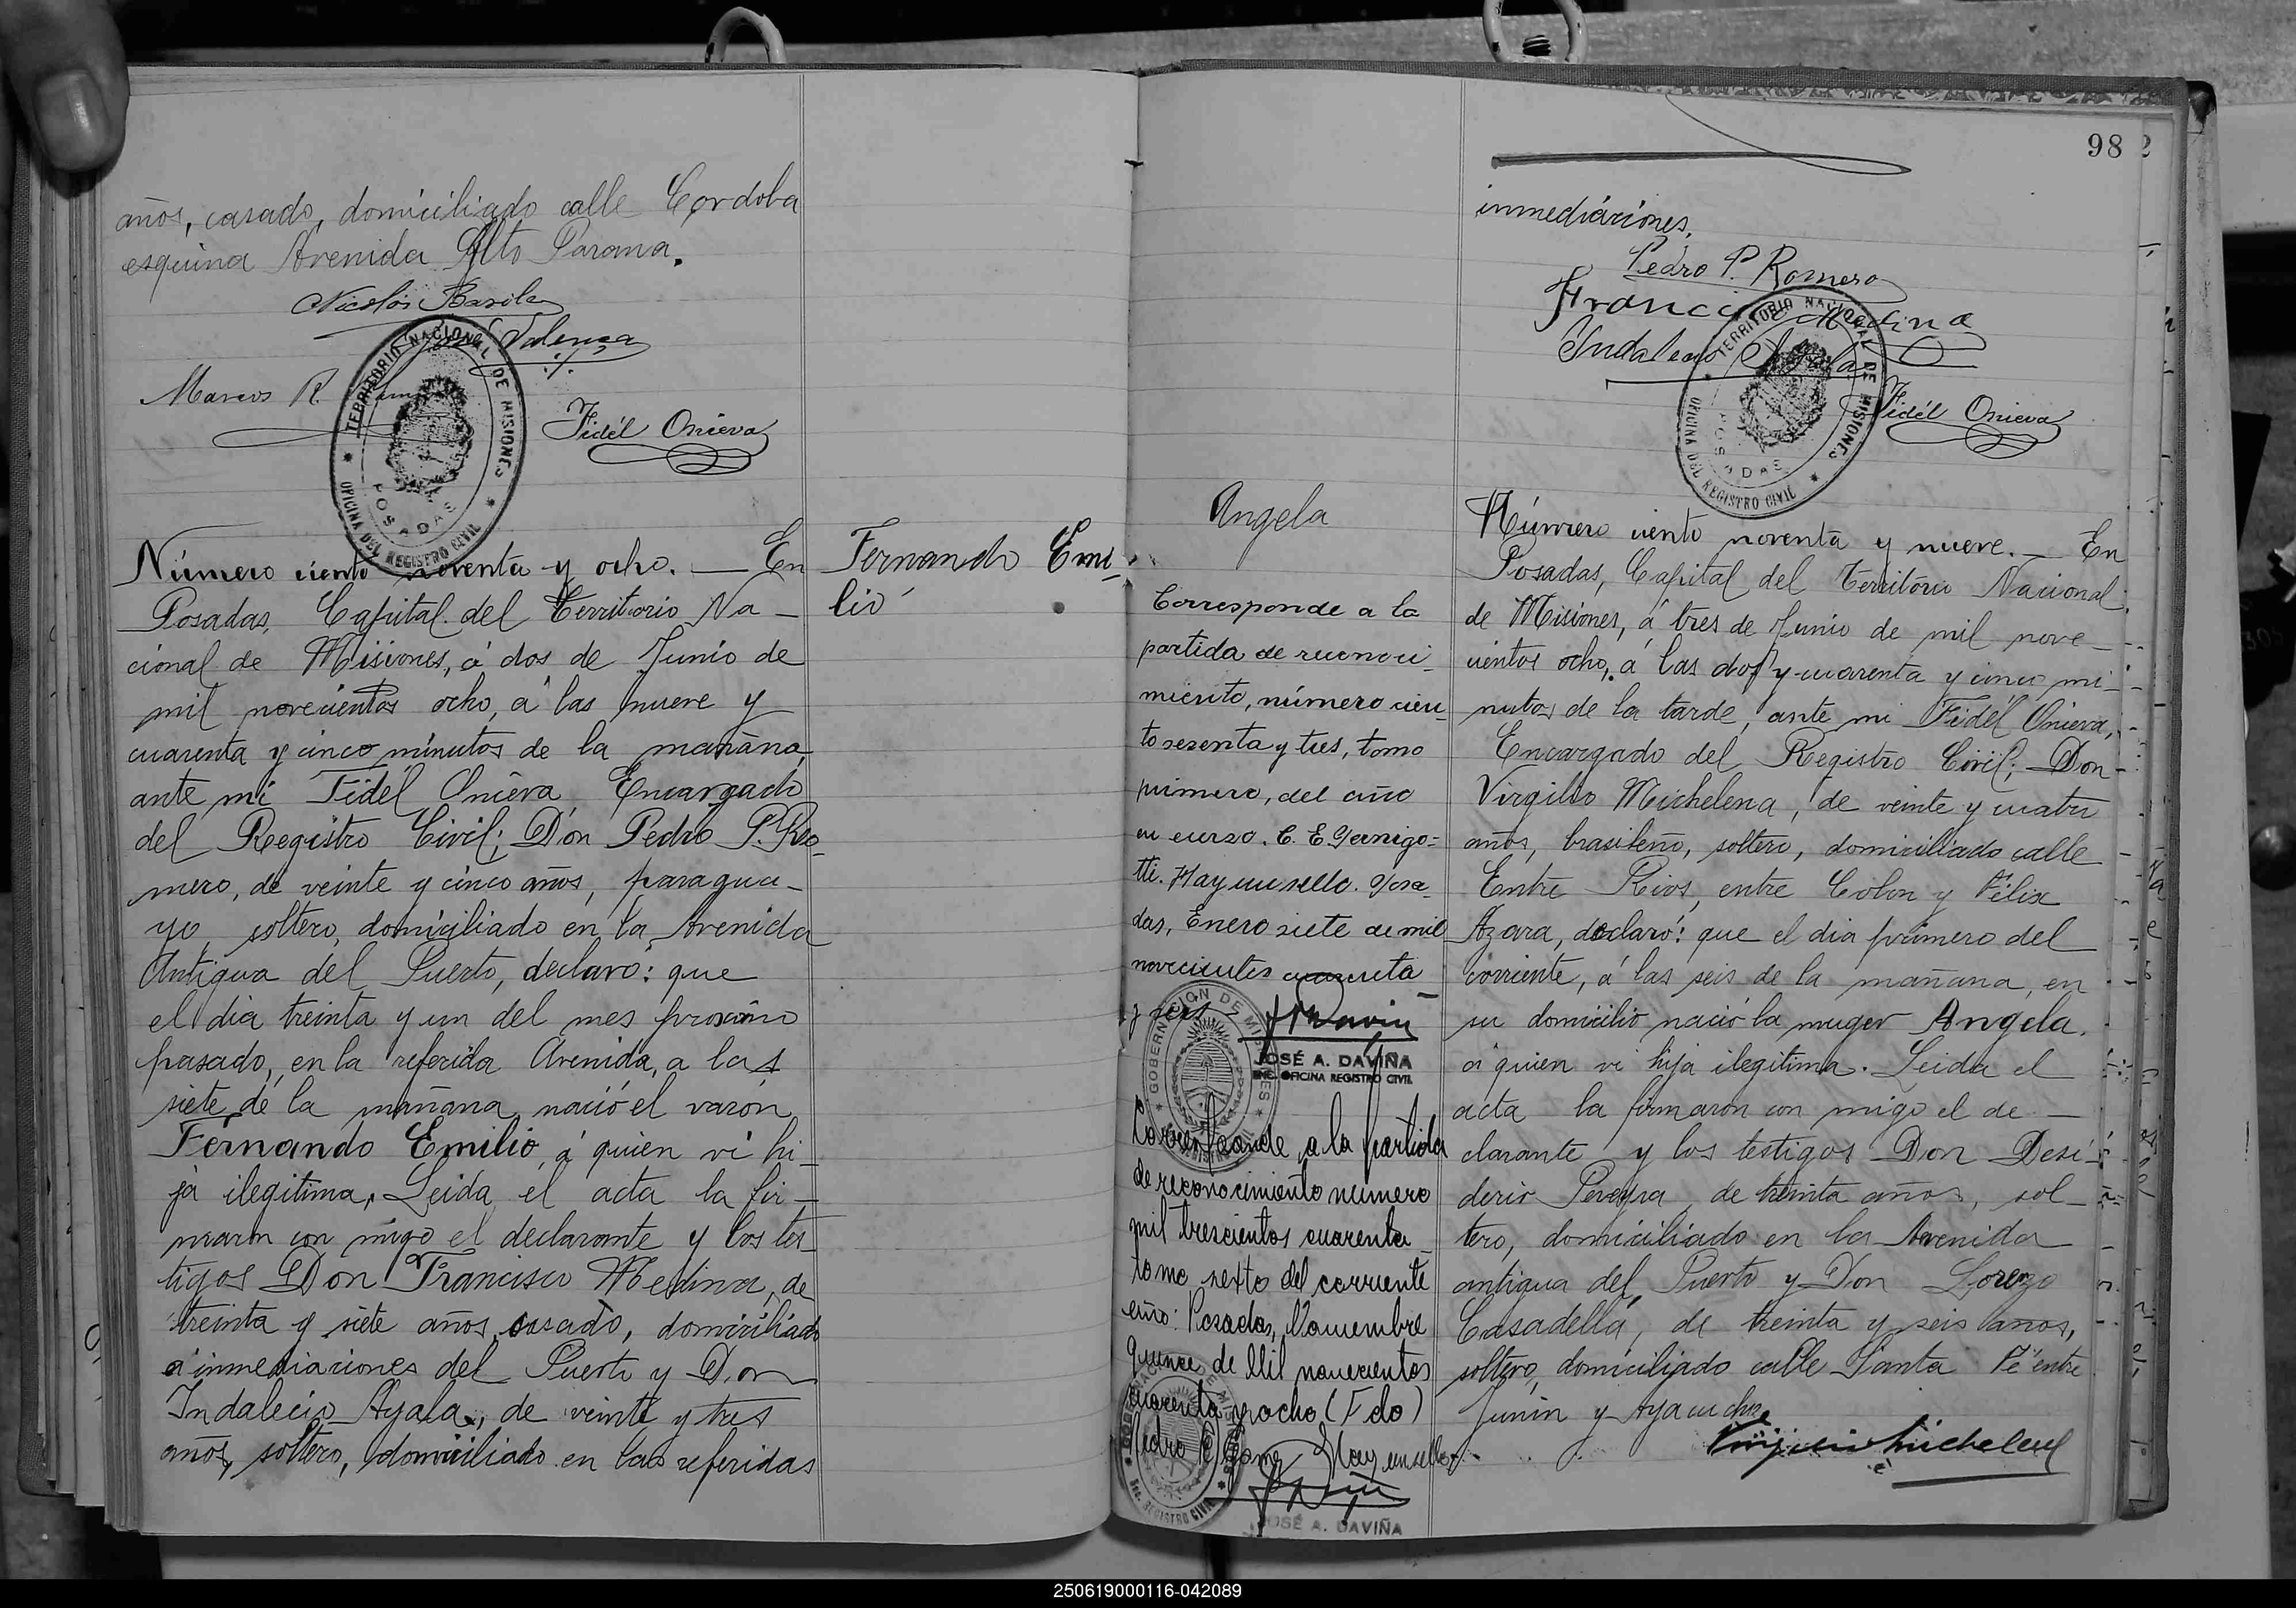 años, casado, domiciliado calle Cordoba
esquina Avenida Alto Parana.
Nicolás Basile
Valenza
Marcos R.
Fidél Onieva
TERRITORIO NACIONAL DE MISIONES
POSADAS
OFICINA DEL REGISTRO CIVIL
Número ciento noventa y ocho. — En
Posadas, Capital del Territorio Na-
cional de Misiones, á dos de Junio de
mil novecientos ocho, á las nueve y
cuarenta y cinco minutos de la mañana,
ante mi Fidél Onieva, Encargado
del Registro Civil; Don Pedro P. Ro-
mero, de veinte y cinco años, paragua-
yo, soltero, domiciliado en la Avenida
Antigua del Puerto, declaró: que
el dia treinta y un del mes proximo
pasado, en la referida Avenida, a las
siete de la mañana, nació el varón
Fernando Emilio, á quien vi hi-
ja ilegitima. Leida el acta la fir-
maron con migo el declarante y los tes-
tigos Don Francisco Medina, de
treinta y siete años, casado, domiciliado
á inmediaciones del Puerto y Don
Indalecio Ayala, de veinte y tres
años, soltero, domiciliado en las referidas
Fernando Emi-
lio
98
inmediaciones.
Pedro P. Romero
Francisco Medina
Indalecio Ayala
Fidél Onieva
TERRITORIO NACIONAL DE MISIONES
POSADAS
OFICINA DEL REGISTRO CIVIL
Angela
Corresponde a la
partida de reconoci-
miento, número cien-
to sesenta y tres, tomo
primero, del año
en curso. C. E. Pernigo-
tti. Hay un sello. Posa-
das, Enero siete de mil
novecientos cuarenta
y seis
JOSÉ A. DAVIÑA
ENC. OFICINA REGISTRO CIVIL
Corresponde a la partida
de reconocimiento numero
mil trescientos cuarenta
tomo sexto del corriente
año: Posadas, Noviembre
quince de Mil novecientos
cuarenta y ocho (Fdo)
Pedro E. Gomez Hay un sello
JOSÉ A. DAVIÑA
Número ciento noventa y nueve. — En
Posadas, Capital del Territorio Nacional
de Misiones, á tres de Junio de mil nove-
cientos ocho, á las dos y cuarenta y cinco mi-
nutos de la tarde, ante mi Fidél Onieva,
Encargado del Registro Civil; Don
Virgilio Michelena, de veinte y cuatro
años, brasileño, soltero, domiciliado calle
Entre Rios, entre Colon y Félix
Azara, declaró: que el dia primero del
corriente, á las seis de la mañana, en
su domicilio nació la muger Angela.
á quien vi hija ilegitima. Leida el
acta la firmaron con migo el de-
clarante y los testigos Don Desi-
derio Pereyra, de treinta años, sol-
tero, domiciliado en la Avenida
antigua del Puerto y Don Lorenzo
Casadella, de treinta y seis años,
soltero, domiciliado calle Santa Fé entre
Junin y Ayacucho
Virgilio Michelena
250619000116-042089